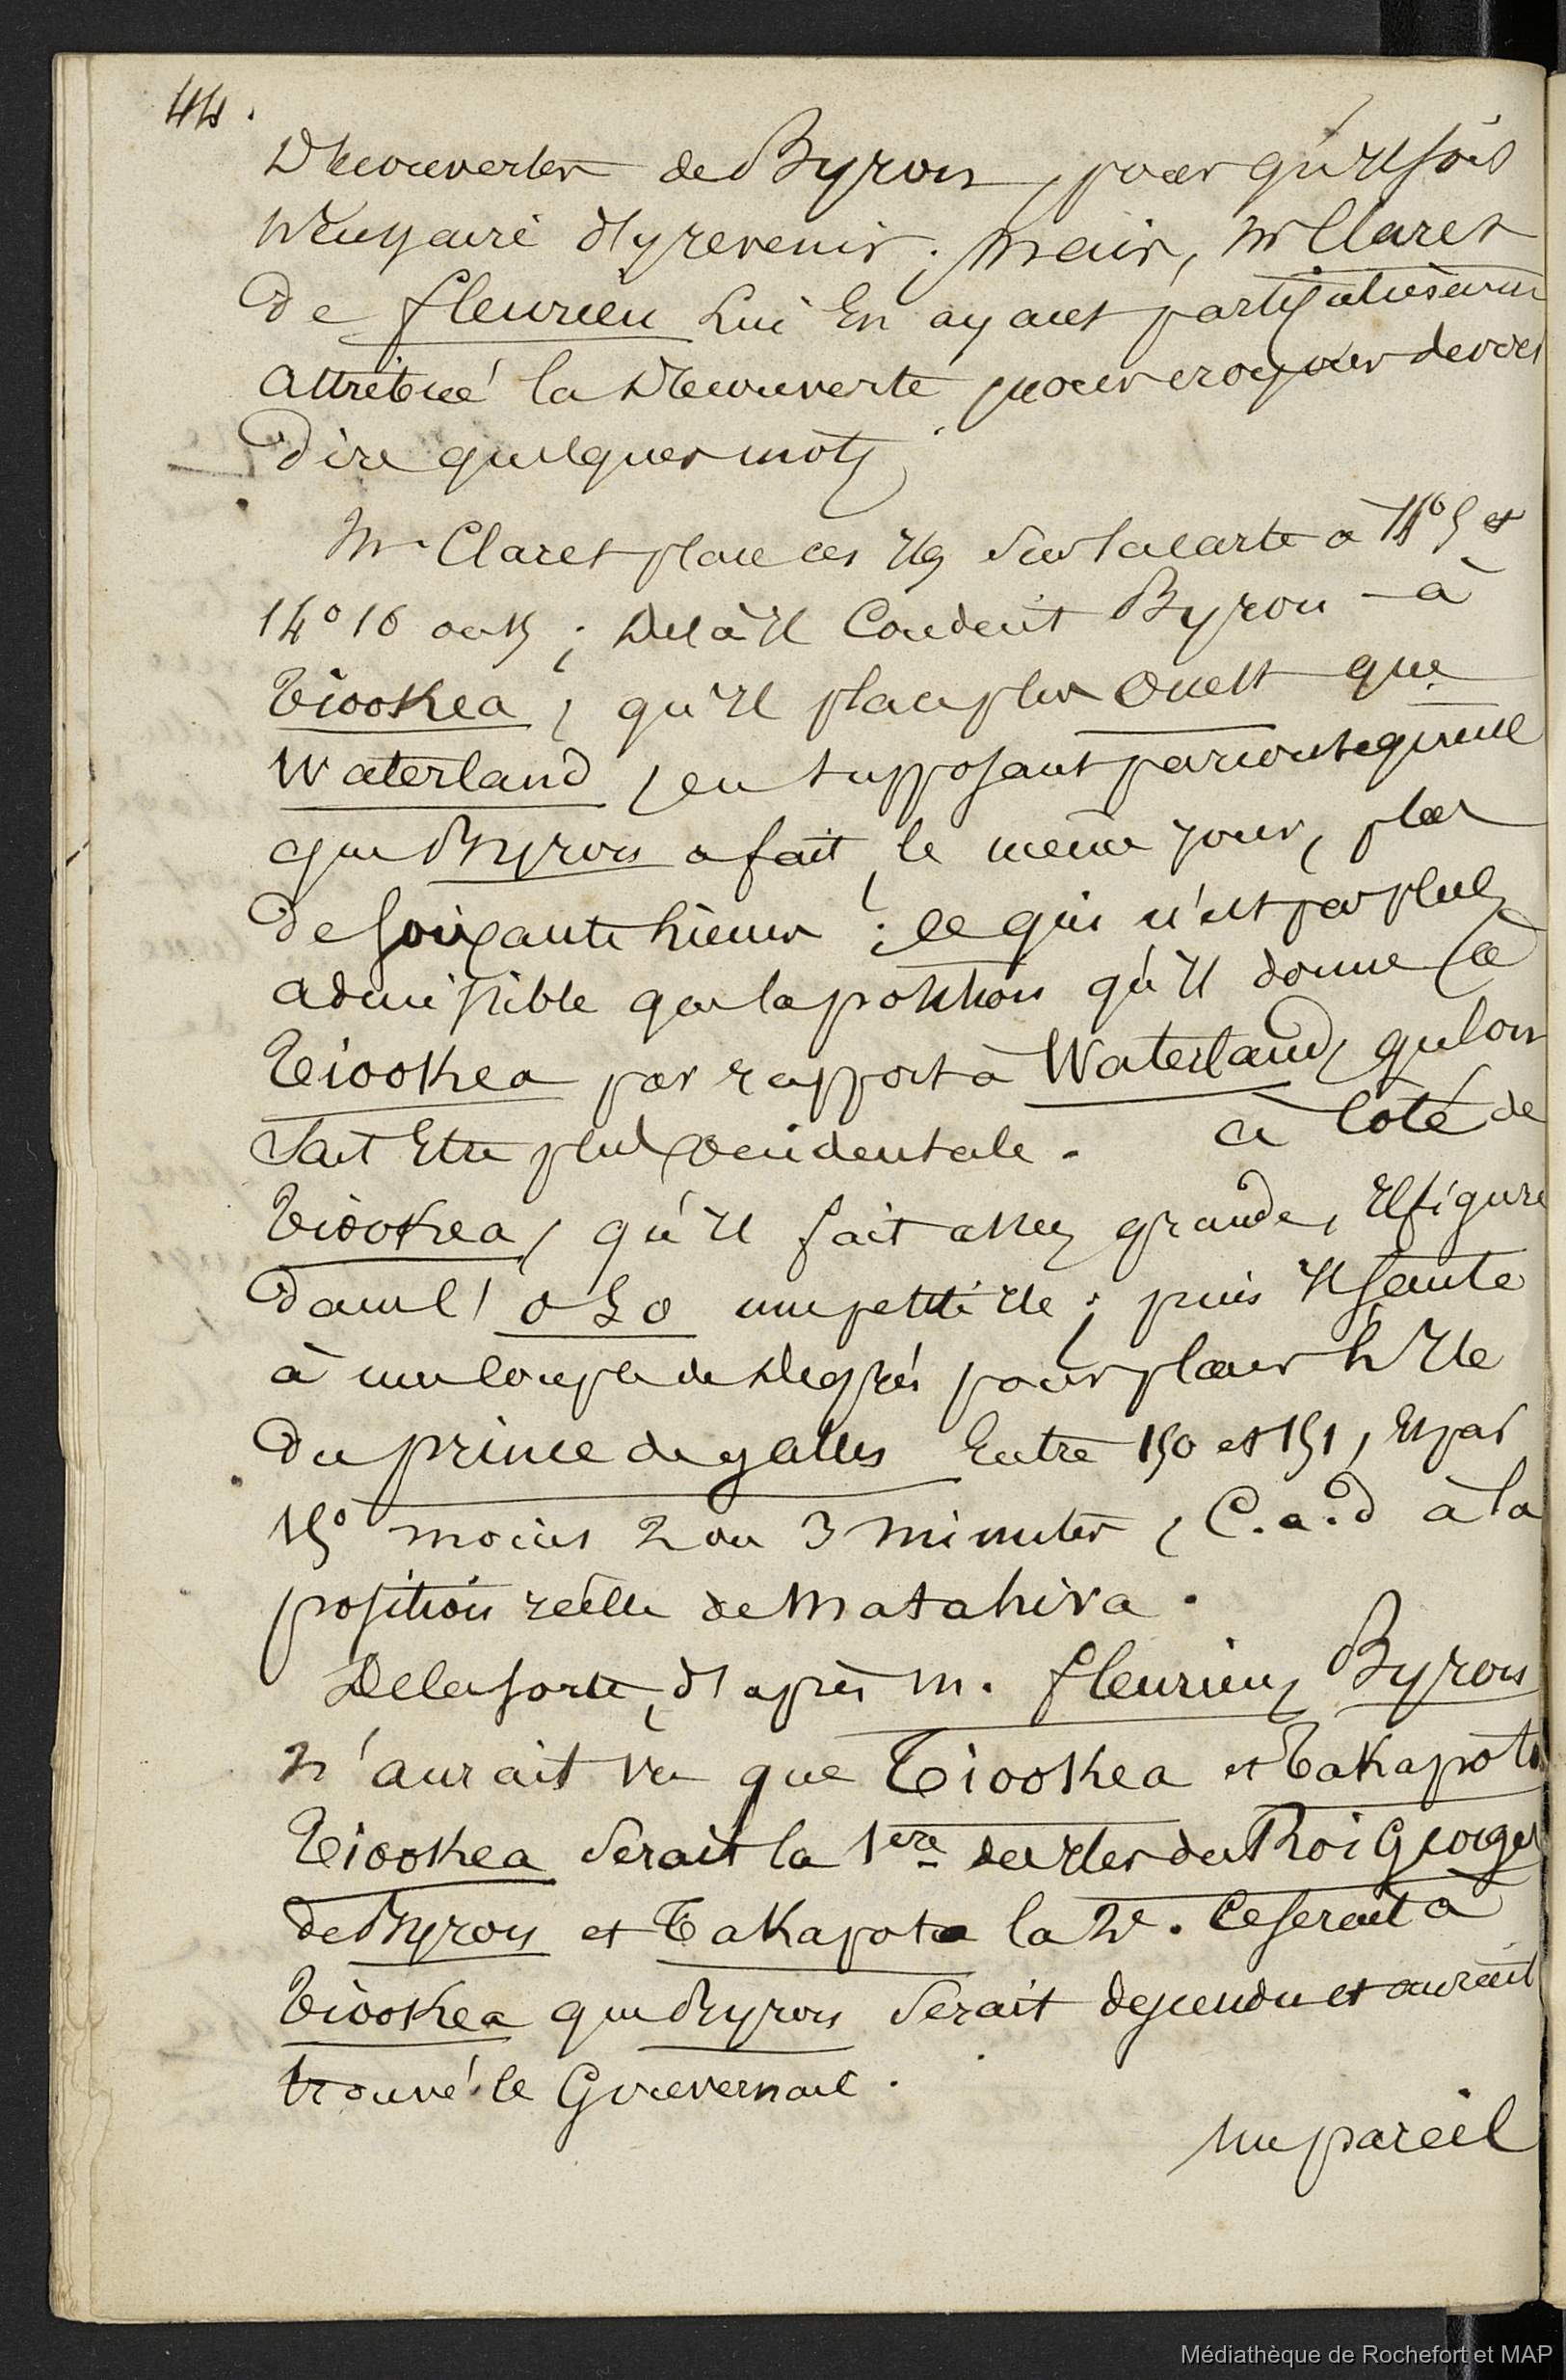 44.
Découvertes de Byron, pour qu'il soit
nécessaire d'y revenir. Mais, Mr Claret
de fleurieu lui en ayant particulièrement
attribué la Découverte nous croyons devoir
dire quelques mots
Mr Claret place ces Iles sur la carte à 14° 5 et
14° 16 ; De là il conduit Byron à
Tiookea, qu'il place plus ouest que
Waterland, en supposant par conséquent
que Byron a fait, le même jour, plus
de soixante lieues ; ce qui n'est pas plus
admissible que la position qu'il donne à
Tiookea par rapport à Waterland, qu'on
sait être plus occidentale. à coté de
Tiookea, qu'il fait assez grande, il figure
dans l' O S O une petite ile ; puis il saute
à une couple de degrés pour placer l'Ile
du prince de galles entre 150 et 151, et par
15° moins 2 ou 3 minutes, C.a.d à la
position réelle de Matahiva.
De la sorte, d'après M. fleurieu, Byron
n'aurait vu que Tiookea et Takapoto
Tiookea serait la 1ere des Iles du Roi Georges
de Byron et Takapoto la 2e. Ce serait à
Tiookea que Byron serait descendu et aurait
trouvé le Gouvernail.
un pareil
Médiathèque de Rochefort et MAP